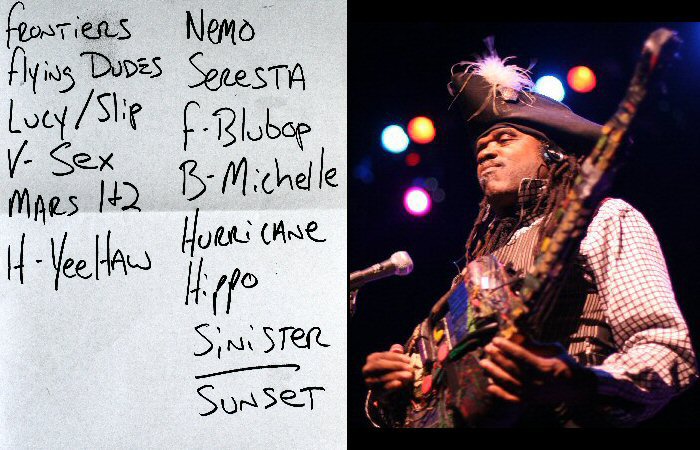 Frontiers
Flying Dudes
Lucy/Slip
V- Sex
Mars 1+2
H-YeeHaw
Nemo
Seresta
F-Blubop
B-Michelle
Hurricane
Hippo
Sinister
Sunset